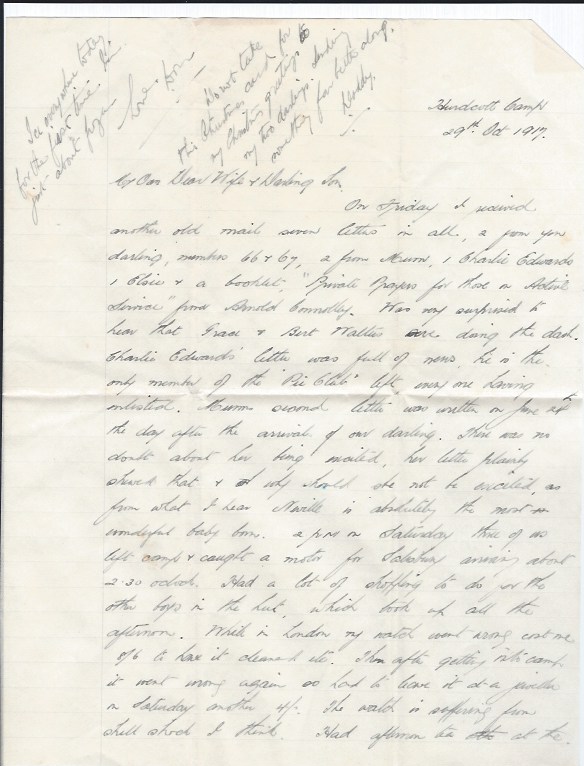 Ice everywhere today
for the first time. I'm
just about frozen
Love Dorn
Do not take
this Christmas card for
my Christmas greetings to
my two darlings. Sending
something far better along.
Daddy.
Hurdcott Camp
29th Oct 1917.
My Own Dear Wife & Darling Son,
On Friday I received
another old mail seven letters in all, 2 from you
darling, numbers 66 & 67, 2 from Mum, 1 Charlie Edwards
1 Elsie & a booklet, "Private Prayers for those on Active
Service" from Arnold Connolly. Was very surprised to
hear that Grace & Bert Walters were doing the dash.
Charlie Edwards' letter was full of news, he is the
only member of the "Pie Club" left every one having
enlisted. Mums second letter was written on June
the day after the arrival of our darling. There was no
doubt about her being excited, her letter plainly
showed that & why should she not be excited, as
from what I hear Neville is absolutely the most
wonderful baby born. 2 pm on Saturday three of us
left camp & caught a motor for Salisbury arriving about
2.30 oclock. Had a lot of shopping to do for the
other boys in the hut, which took up all the
afternoon. While in London my watch went wrong cost me
8/6 to have it cleaned etc. Then after getting into camp
it went wrong again so had to leave it at a jeweller
on Saturday another 4/-. The watch is suffering from
shell shock I think. Had afternoon tea at the